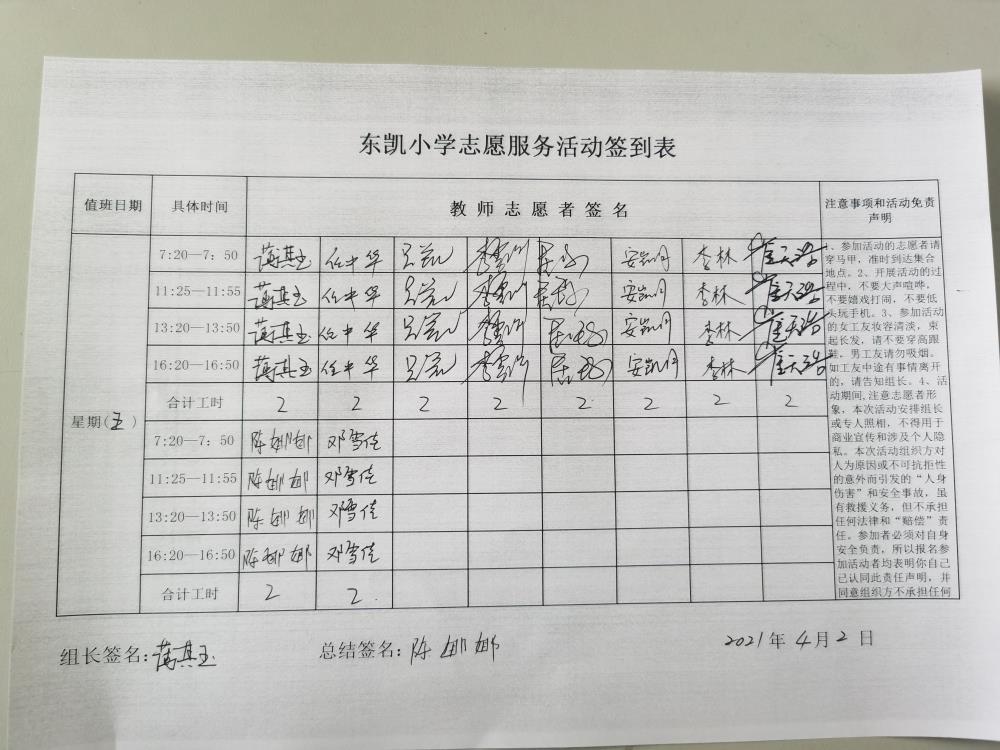 东凯小学志愿服务活动签到表
值班日期 具体时间 教师志愿者签名 注意事项和活动免责声明
星期(五)
7:20—7:50 蒋其玉 任中华 安凯月 李林 崔天浩
11:25—11:55 蒋其玉 任中华 安凯月 李林 崔天浩
13:20—13:50 蒋其玉 任中华 安凯月 李林 崔天浩
16:20—16:50 蒋其玉 任中华 安凯月 李林 崔天浩
合计工时 2 2 2 2 2 2 2 2
7:20—7:50 陈娜娜 邓雪佳
11:25—11:55 陈娜娜 邓雪佳
13:20—13:50 陈娜娜 邓雪佳
16:20—16:50 陈娜娜 邓雪佳
合计工时 2 2
1、参加活动的志愿者请
穿马甲,准时到达集合
地点。2、开展活动的过
程中,不要大声喧哗,
不要嬉戏打闹,不要低
头玩手机。3、参加活动
的女工友妆容清淡,束
起长发,请不要穿高跟
鞋,男工友请勿吸烟。
如工友中途有事情离开
的,请告知组长。4、活
动期间,注意志愿者形
象,本次活动安排组长
或专人照相,不得用于
商业宣传和涉及个人隐
私。本次活动组织方对
人为原因或不可抗拒性
的意外而引发的“人身
伤害”和安全事故,虽
有救援义务,但不承担
任何法律和“赔偿”责
任。参加者必须对自身
安全负责,所以报名参
加活动者均表明你自己
已认同此责任声明,并
同意组织方不承担任何
组长签名:蒋其玉 总结签名:陈娜娜 2021年4月2日